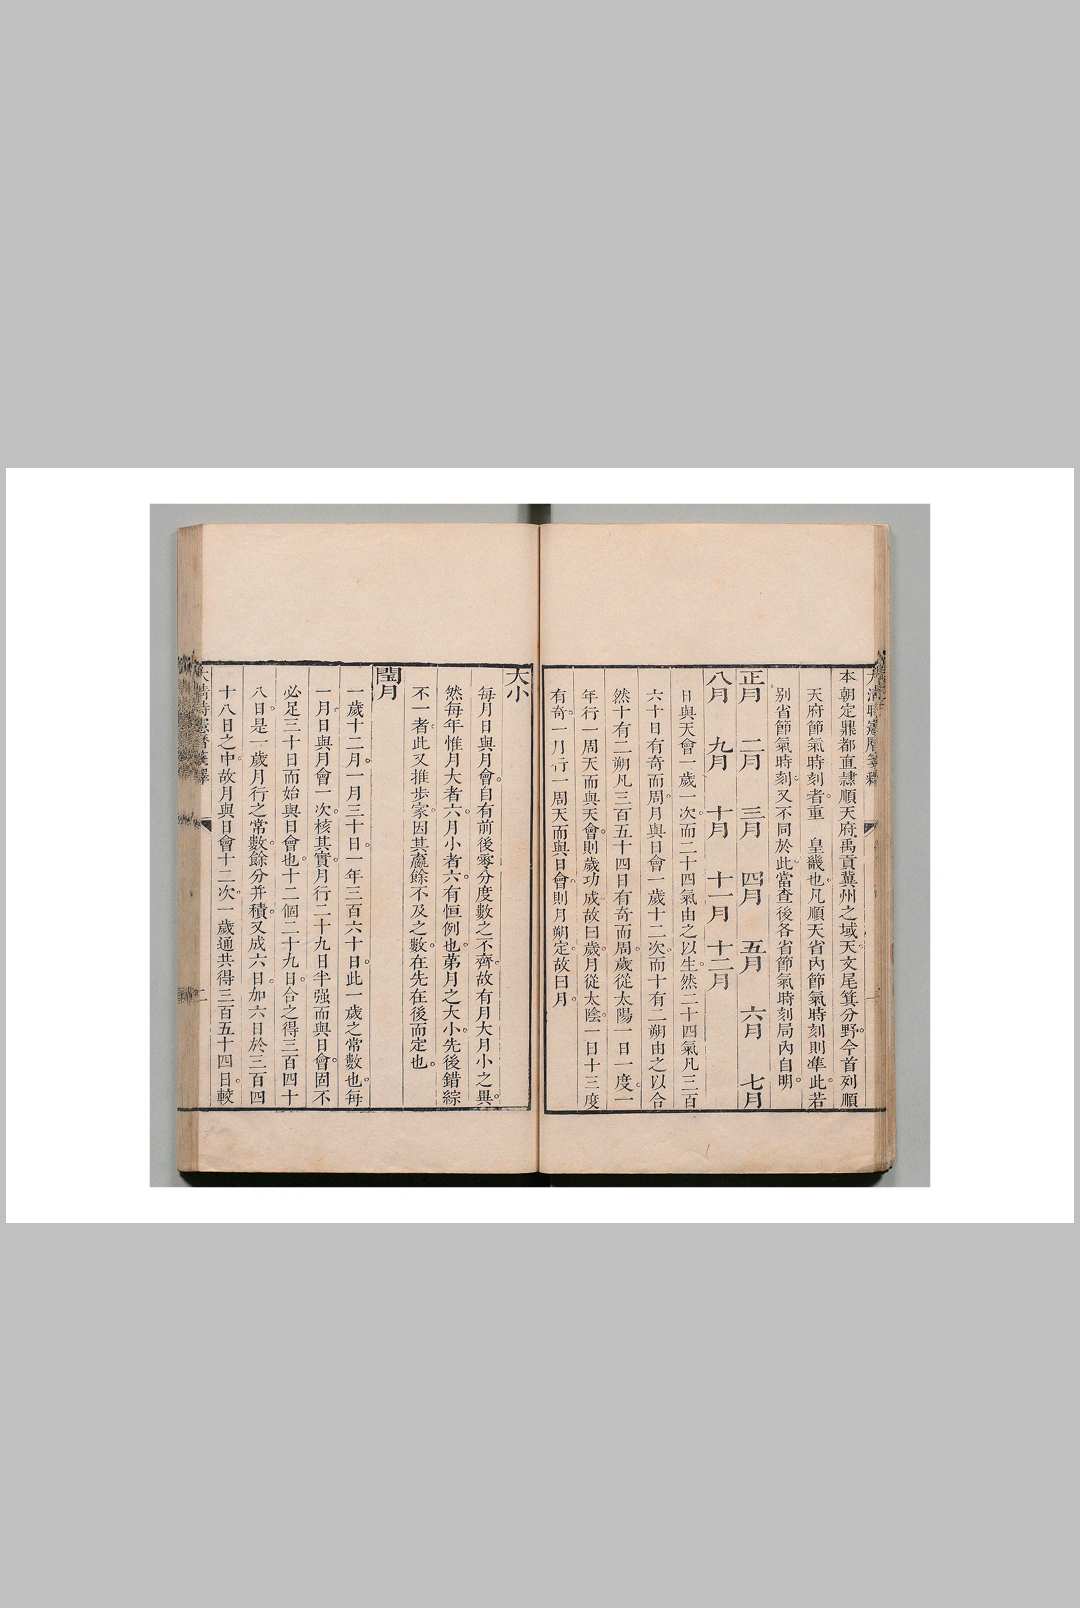 本朝定鼎都直隷順天府禹貢冀州之域天文尾箕分野今首列順
天府節氣時刻者重　皇畿也凡順天省內節氣時刻則準此若
別省節氣時刻又不同於此當查後各省節氣時刻局內自明
正月　二月　三月　四月　五月　六月　七月
八月　九月　十月　十一月　十二月
日與天會一歲一次而二十四氣由之以生然二十四氣凡三百
六十日有奇而周月與日會一歲十二次而十有二朔由之以合
然十有二朔凡三百五十四日有奇而周歲從太陽一日一度一
年行一周天而與天會則歲功成故曰歲月從太陰一日十三度
有奇一月行一周天而與日會則月朔定故曰月
大小
每月日與月會自有前後零分度數之不齊故有月大月小之異
然每年惟月大者六月小者六有恒例也苐月之大小先後錯綜
不一者此又推步家因其嬴餘不及之數在先在後而定也
閏月
一歲十二月一月三十日一年三百六十日此一歲之常數也每
一月日與月會一次核其實月行二十九日半强而與日會固不
必足三十日而始與日會也十二個二十九日合之得三百四十
八日是一歲月行之常數餘分并積又成六日加六日於三百四
十八日之中故月與日會十二次一歲通共得三百五十四日較
大清時憲曆箋釋　二